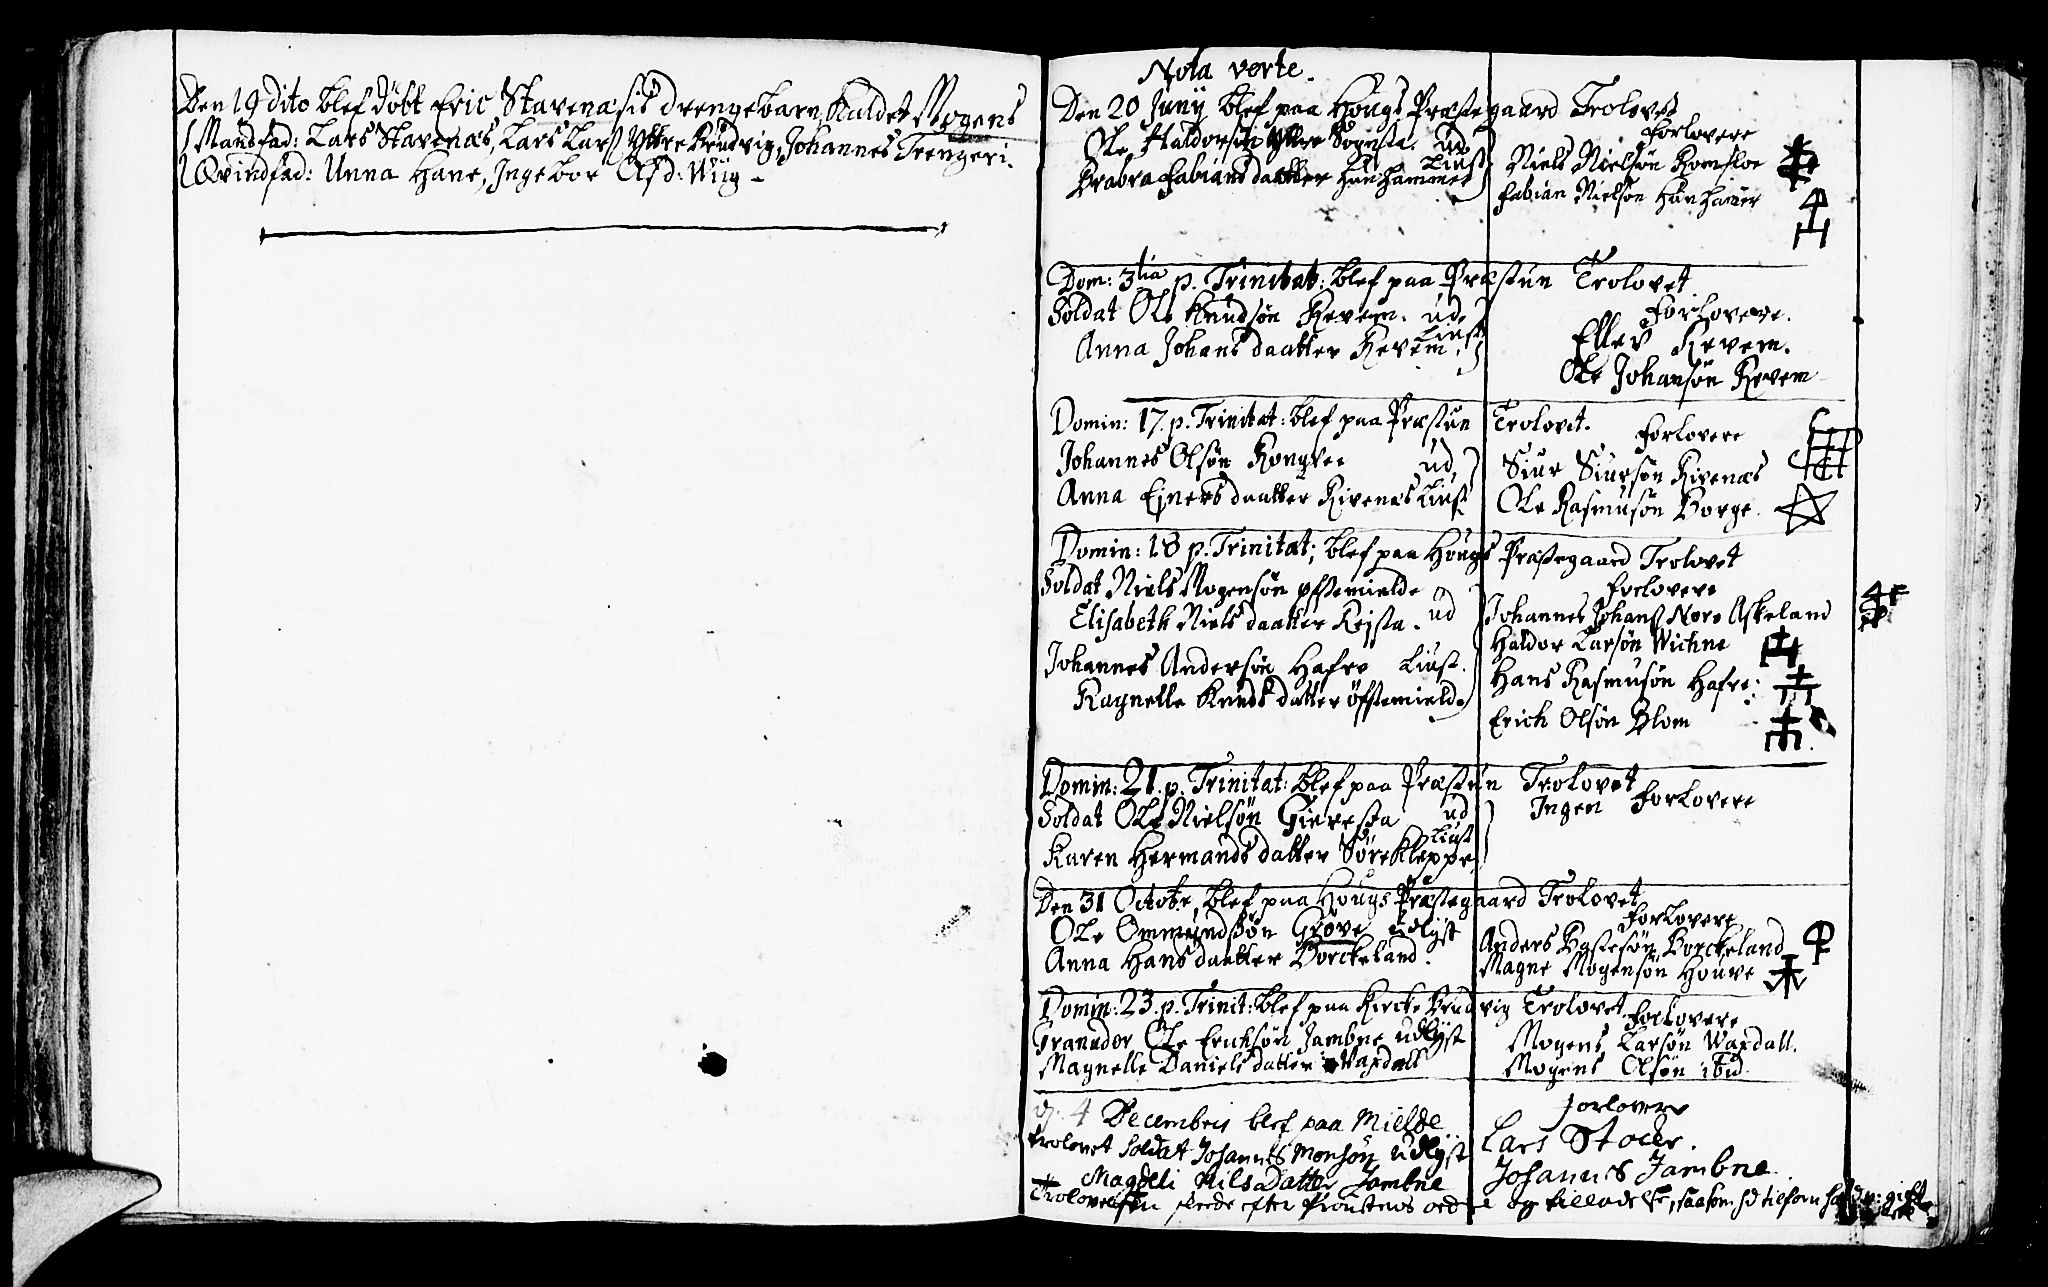 Den 19 dito blef døbt Eric Stavenæs sit drengebarn, kaldet Mogens
Mandfad: Lars Stavenæs, Lars Larß Yttre Brudvig, Johannes Trengeri.
Qvindfad: Unna Hane, Ingebor Olsd: Wiig -
Nota verte.
Den 20 Junij blef paa Hougs Præstegaard Trolovet
Ole Haldorsøn Yttre ud
Brabra Fabiansdaatter Hanhammer Liust
Forlovere
Niels Nielsøn Romsloe
Fabian Nielsøn Hanhamer
Dom: 3tia p. Trinitat: blef paa Præstun Trolovet
Soldat Ole Knudsøn Revem. ud
Anna Johansdaatter Revem. Liust
Forlovere.
Ellev Revem.
Ole Johansøn Revem
Domin: 17. p. Trinitat: blef paa Præstun Trolovet.
Johannes Olsøn Kongvee ud
Anna Ejnersdaatter Rivenæs Liust
Forlovere
Siur Siursøn Rivenæs
Ole Rasmusøn Borge.
Domin: 18 p. Trinitat; blef paa Hougs Præstegaard Trolovet
Soldat Niels Mogensøn Øfstemielde
Elisabeth Nielsdaatter Rejsta. ud
Johannes Andersøn Hafre Liust.
Ragnelle Knudsdatter Øfstemielde
Forlovere
Johannes Johanß Nore Askeland
Haldor Larsøn Wichne
Hans Rasmusøn Hafre:
Erich Olsøn Blom
Domin: 21. p. Trinitat: blef paa Præstun Trolovet
Soldat Ole Nielsøn Giæresta ud
Karen Hermandsdatter Søre Kleppe Liust
Ingen Forlovere
Den 31 Octobr, blef paa Hougs Præstegaard Trolovet
Ole Ommundsøn Grøve udlyst
Anna Hansdaatter Borckeland.
Forlovere
Anders Borckeland
Magne Mogensøn Houve
Domin: 23. p. Trinit: blef paa Kircke Brudvig Trolovet
Granader Ole Erichsøn Jambne udlyst
Magnelle Danielsdatter Waxdall
Forlovere
Mogens Larsøn Waxdall.
Mogens Olsøn ibid.
D. 4 Decembris blef paa Mielde
trolovet Soldat Johannes Monsøn udlyst
Magdeli Nilsdatter Jambne
Forlovere
Lars Stocke.
Johannes Jambne.
Trolovelsen skeede efter Proustens ordre og tilladelse,